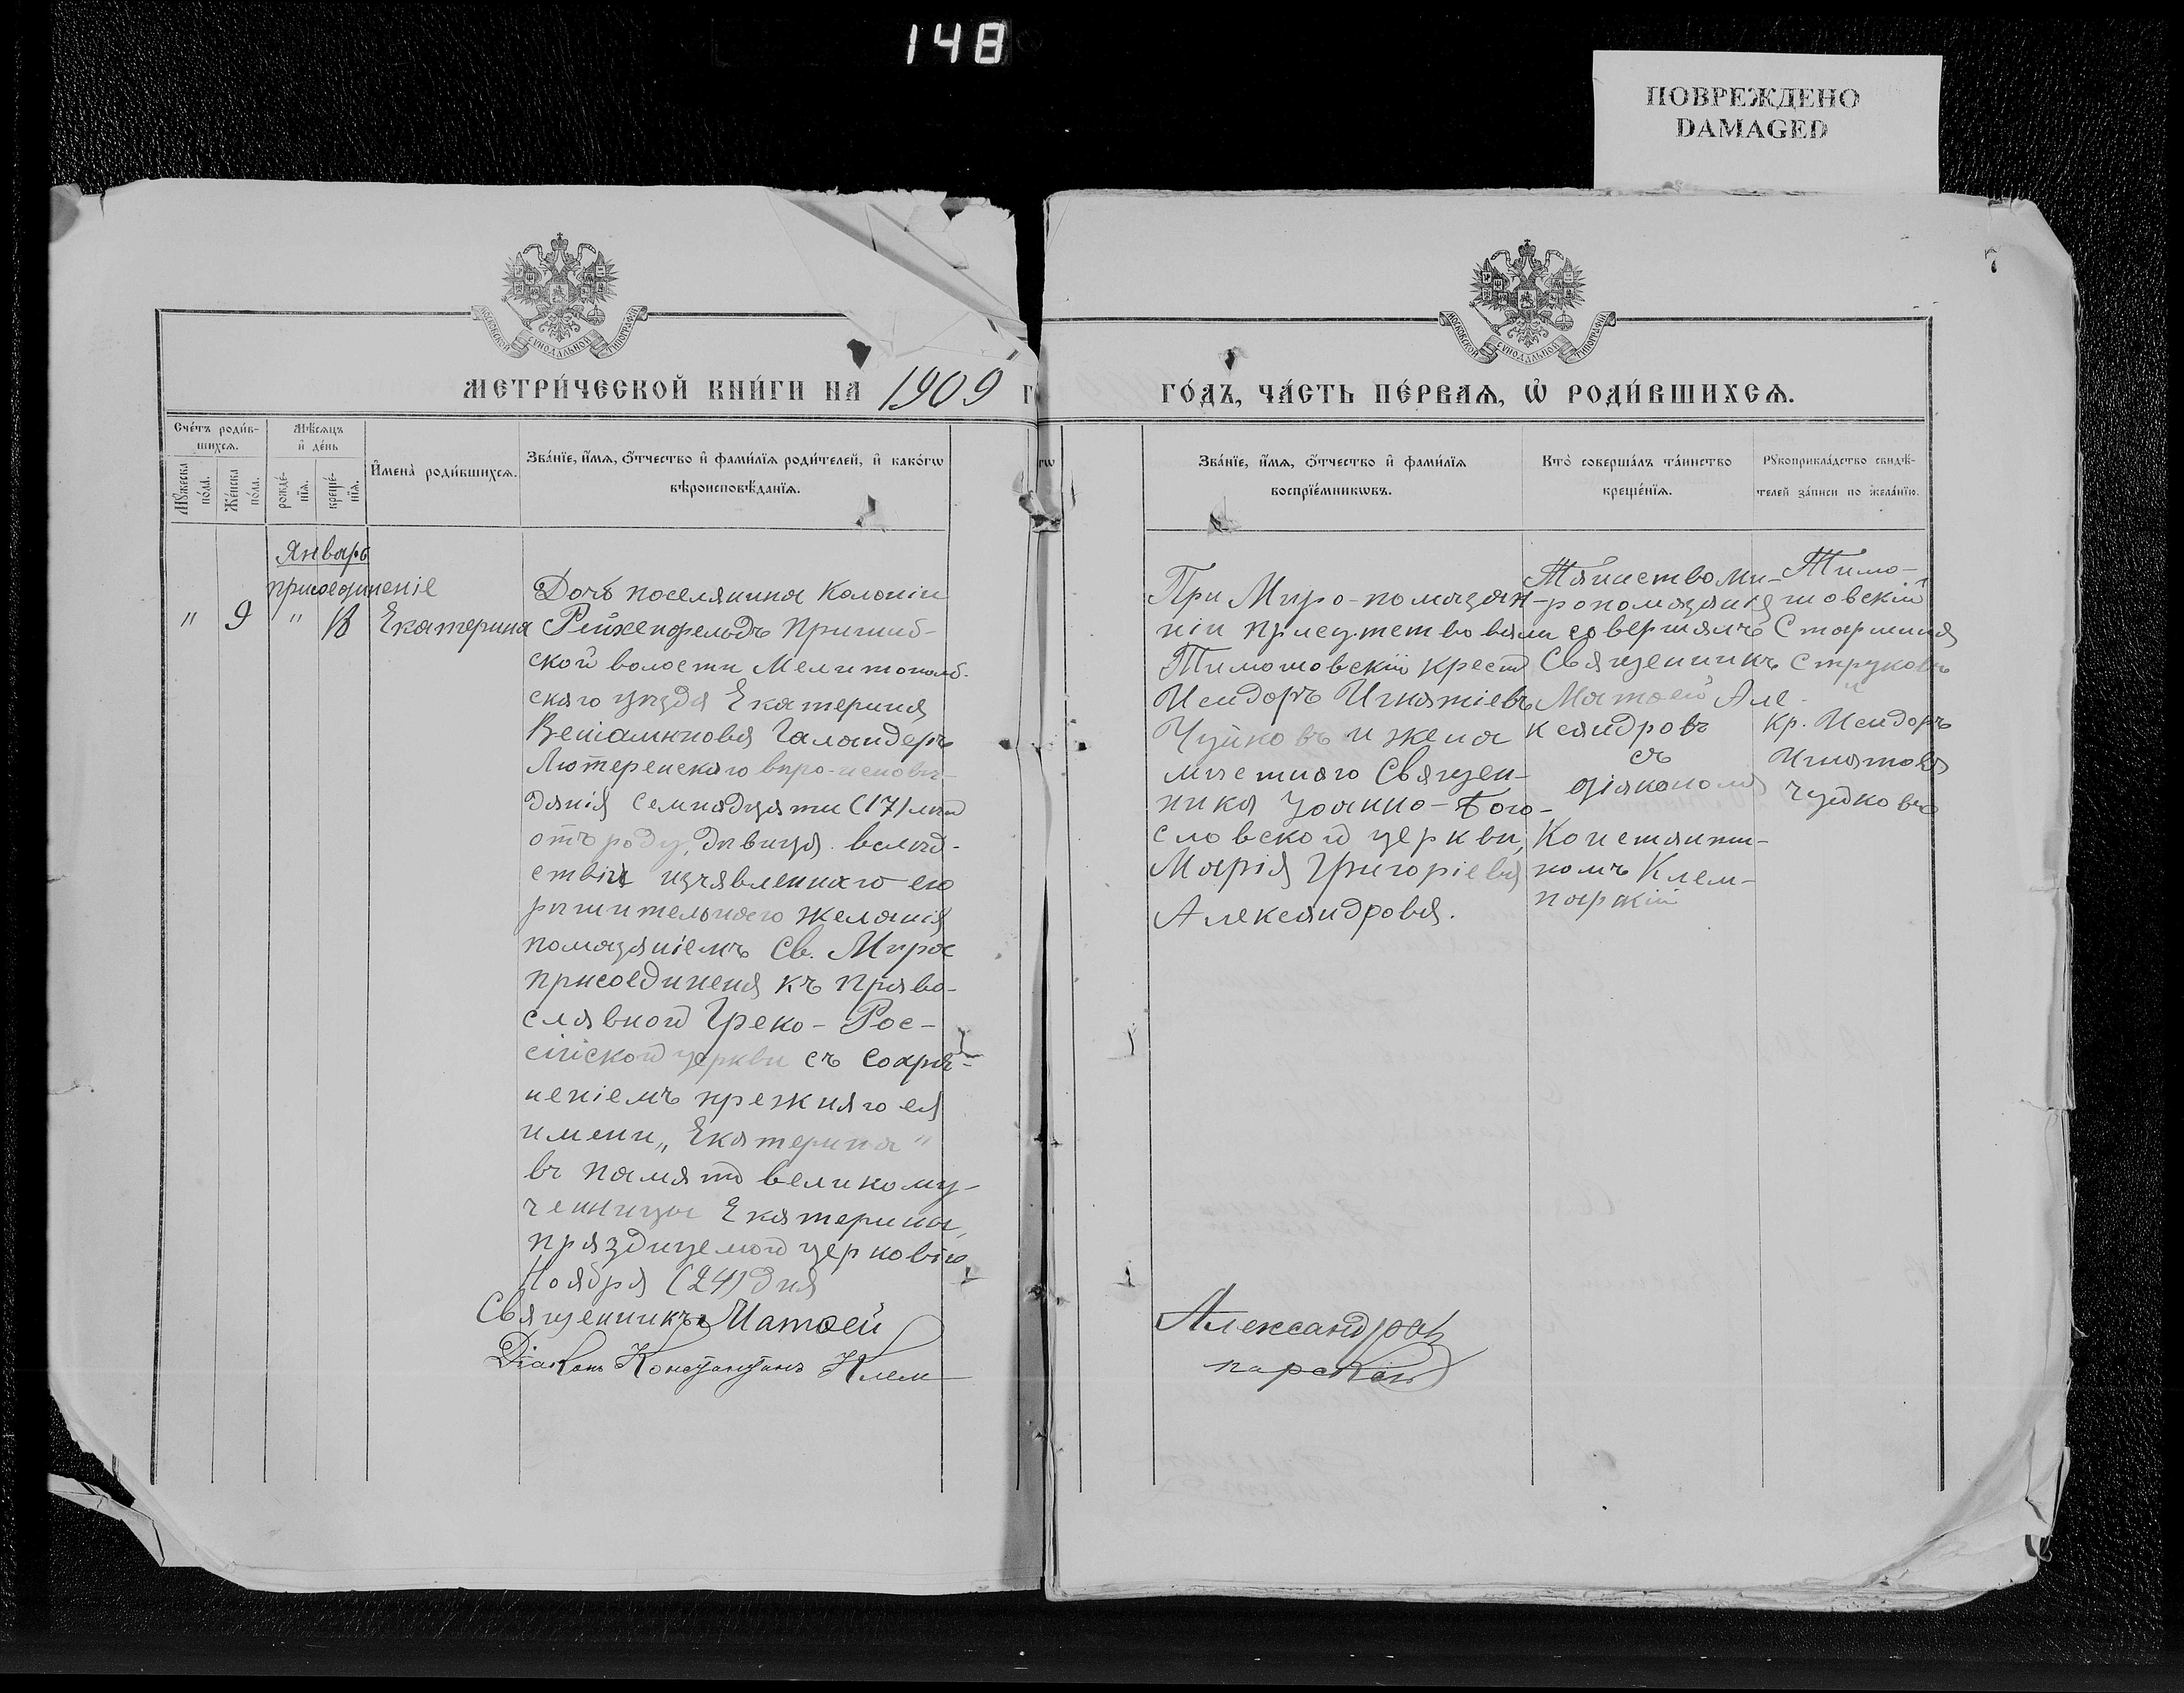 148
ПОВРЕЖДЕНО
DAMAGED
7
МОСКОВСКОЙ СѴНОДАЛЬНОЙ ТИПОГРАФІИ
МОСКОВСКОЙ СѴНОДАЛЬНОЙ ТИПОГРАФІИ
МЕТРИ́ЧЕСКОЙ КНИ́ГИ НА 1909 Г
ГО́ДЪ, ЧА́СТЬ ПЕ́РВАѦ, Ѡ҆ РОДИ́ВШИХСѦ.
Сче́тъ роди́в-
шихсѧ.
Мꙋ́жеска по́ла.
Же́нска по́ла.
Мѣ́сѧцъ
и҆ де́нь
рожде́-
нїѧ.
креще́-
нїѧ.
И҆мена̀ роди́вшихсѧ.
Зва́нїе, и҆́мѧ, ѻ҆́тчество и҆ фами́лїѧ роди́телей, и҆ како́гѡ
вѣроисповѣ́данїѧ.
гѡ
Зва́нїе, и҆́мѧ, ѻ҆́тчество и҆ фами́лїѧ
воспрїе́мникѡвъ.
Кто̀ соверша́лъ та́инство
креще́нїѧ.
Рꙋкоприкла́дство свидѣ́-
телей за́писи по жела́нїю.
Январь
присоединеніе
" 9 " 18 Екатерина
Дочь поселянина Колоніи
Рейхенфельдъ Пришиб-
ской волости Мелитополь-
скаго уѣзда Екатерина
Веніаминова Галандеръ
Лютеренскаго вѣро-исповѣ-
данія семнадцати (17) лѣтъ
отъ роду, дѣвица. вслѣд-
ствіи изъявленнаго ею
рѣшительнаго желанія
помазаніемъ Св. Мира
присоединена къ Право-
славной Греко-Рос-
сійской церкви съ сохра-
неніемъ прежняго ея
имени „Екатерина"
въ память великому-
ченницы Екатерины,
празднуемой церковію
Ноября (24) дня
Священникъ Матѳей
Діаконъ Константинъ Клем-
При Миро-помазан-
ніи присутствовали
Тимошовскій крест
Исидоръ Игнатіевъ
Чуйковъ и жена
мѣстнаго Священ-
ника Іоанно-Бого-
словской церкви,
Марія Григоріева
Александрова.
Таинство Ми-
ропомазанія
совершалъ
Священникъ
Матѳей Але-
ксандровъ
съ
діакономъ
Константи-
номъ Клем-
парскій
Тимо-
шовскій
Старшина
Струковъ
и
Кр. Исидоръ
Игнатовъ
Чуйковъ
Александровъ
парскій